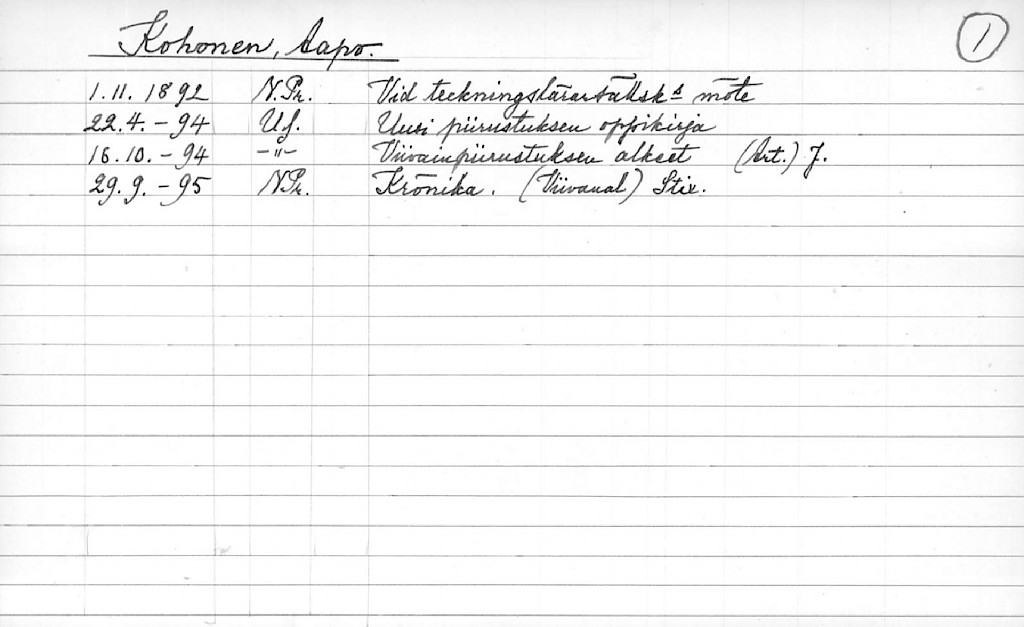 Kohonen, Aapo.
1
1.11. 1892 N.Pr. Vid teckningslärarsällsk:s möte
22.4. - 94 U.S. Uusi piirustuksen oppikirja
16.10. - 94 -"- Viivainpiirustuksen alkeet (Art.) J.
29.9. - 95 N.Pr. Krönika. (Viivaual) Stix.